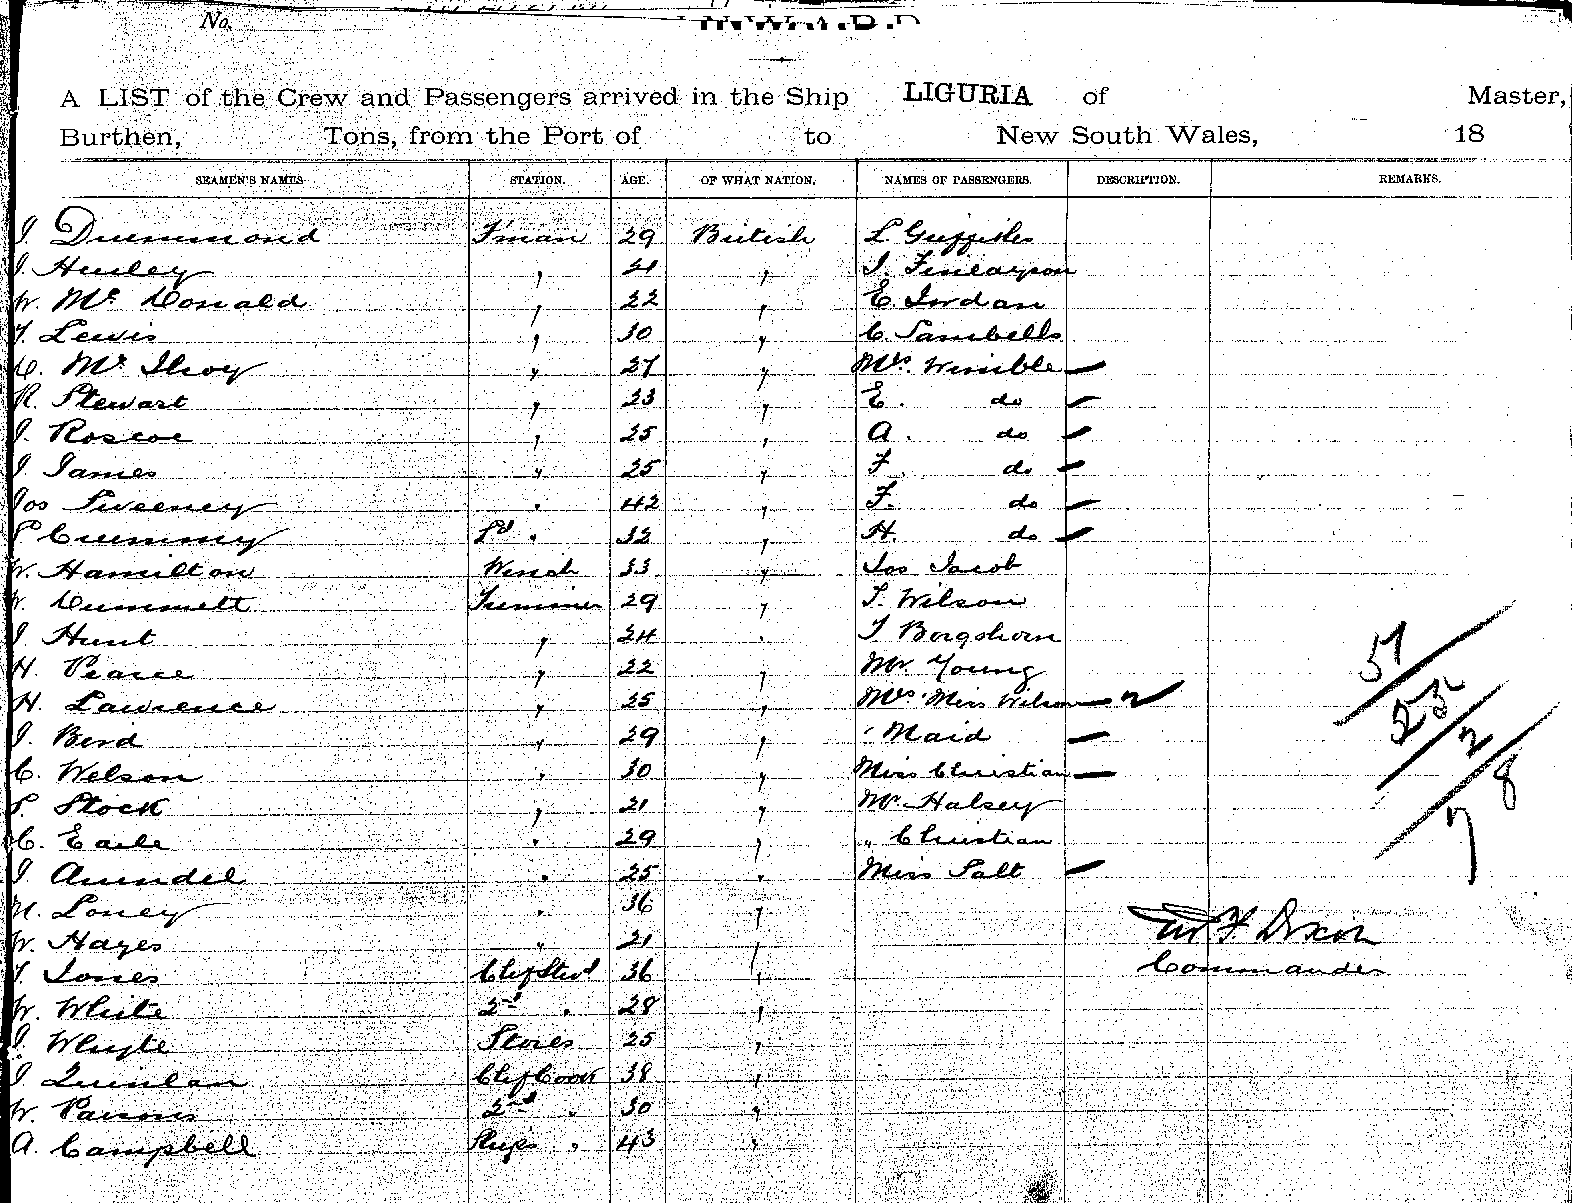 No.
INWARD
A LIST of the Crew and Passengers arrived in the Ship LIGURIA of Master,
Burthen, Tons, from the Port of to New South Wales, 18
SEAMEN'S NAMES. STATION. AGE. OF WHAT NATION. NAMES OF PASSENGERS. DESCRIPTION. REMARKS.
J. Drummond F'man 29 British L. Griffiths
J. Hurley " 21 " J. Finlayson
W. Mc Donald " 22 " E. Jordan
T. Lewis " 30 " C. Sambells
C. Mc Ilroy " 27 " Mrs. Wimble —
R. Stewart " 23 " E. do —
J. Roscoe " 25 " A. do —
J. James " 25 " F. do —
Jos Sweeney " 42 " F. do —
P Cummny " 32 " H. do —
W. Hamilton Winch 33 " Jas Jacob
W. Dummett Trimmer 29 " T. Wilson
J. Hunt " 24 " T Borgshorn
H. Pearce " 22 " Mr. Young
H. Lawrence " 25 " Mrs. Miss Wilson — 2
J. Bird " 29 " " Maid —
C. Wilson " 30 " Miss Christian —
P. Stock " 21 " Mr Halsey
C. Earle " 29 " " Christian
J. Arundel " 25 " Miss Salt —
N. Loney " 36 "
W. Hayes " 21 "
T. Jones Chf Stwd 36 "
W. White 2nd " 28 "
J. Whyte Stores 25 "
J Quinlan Chf Cook 38 "
W. Parsons 2nd " 30 "
A. Campbell Ship's " 43 "
51
23
2
8
7
Wm F. Dixon
Commander